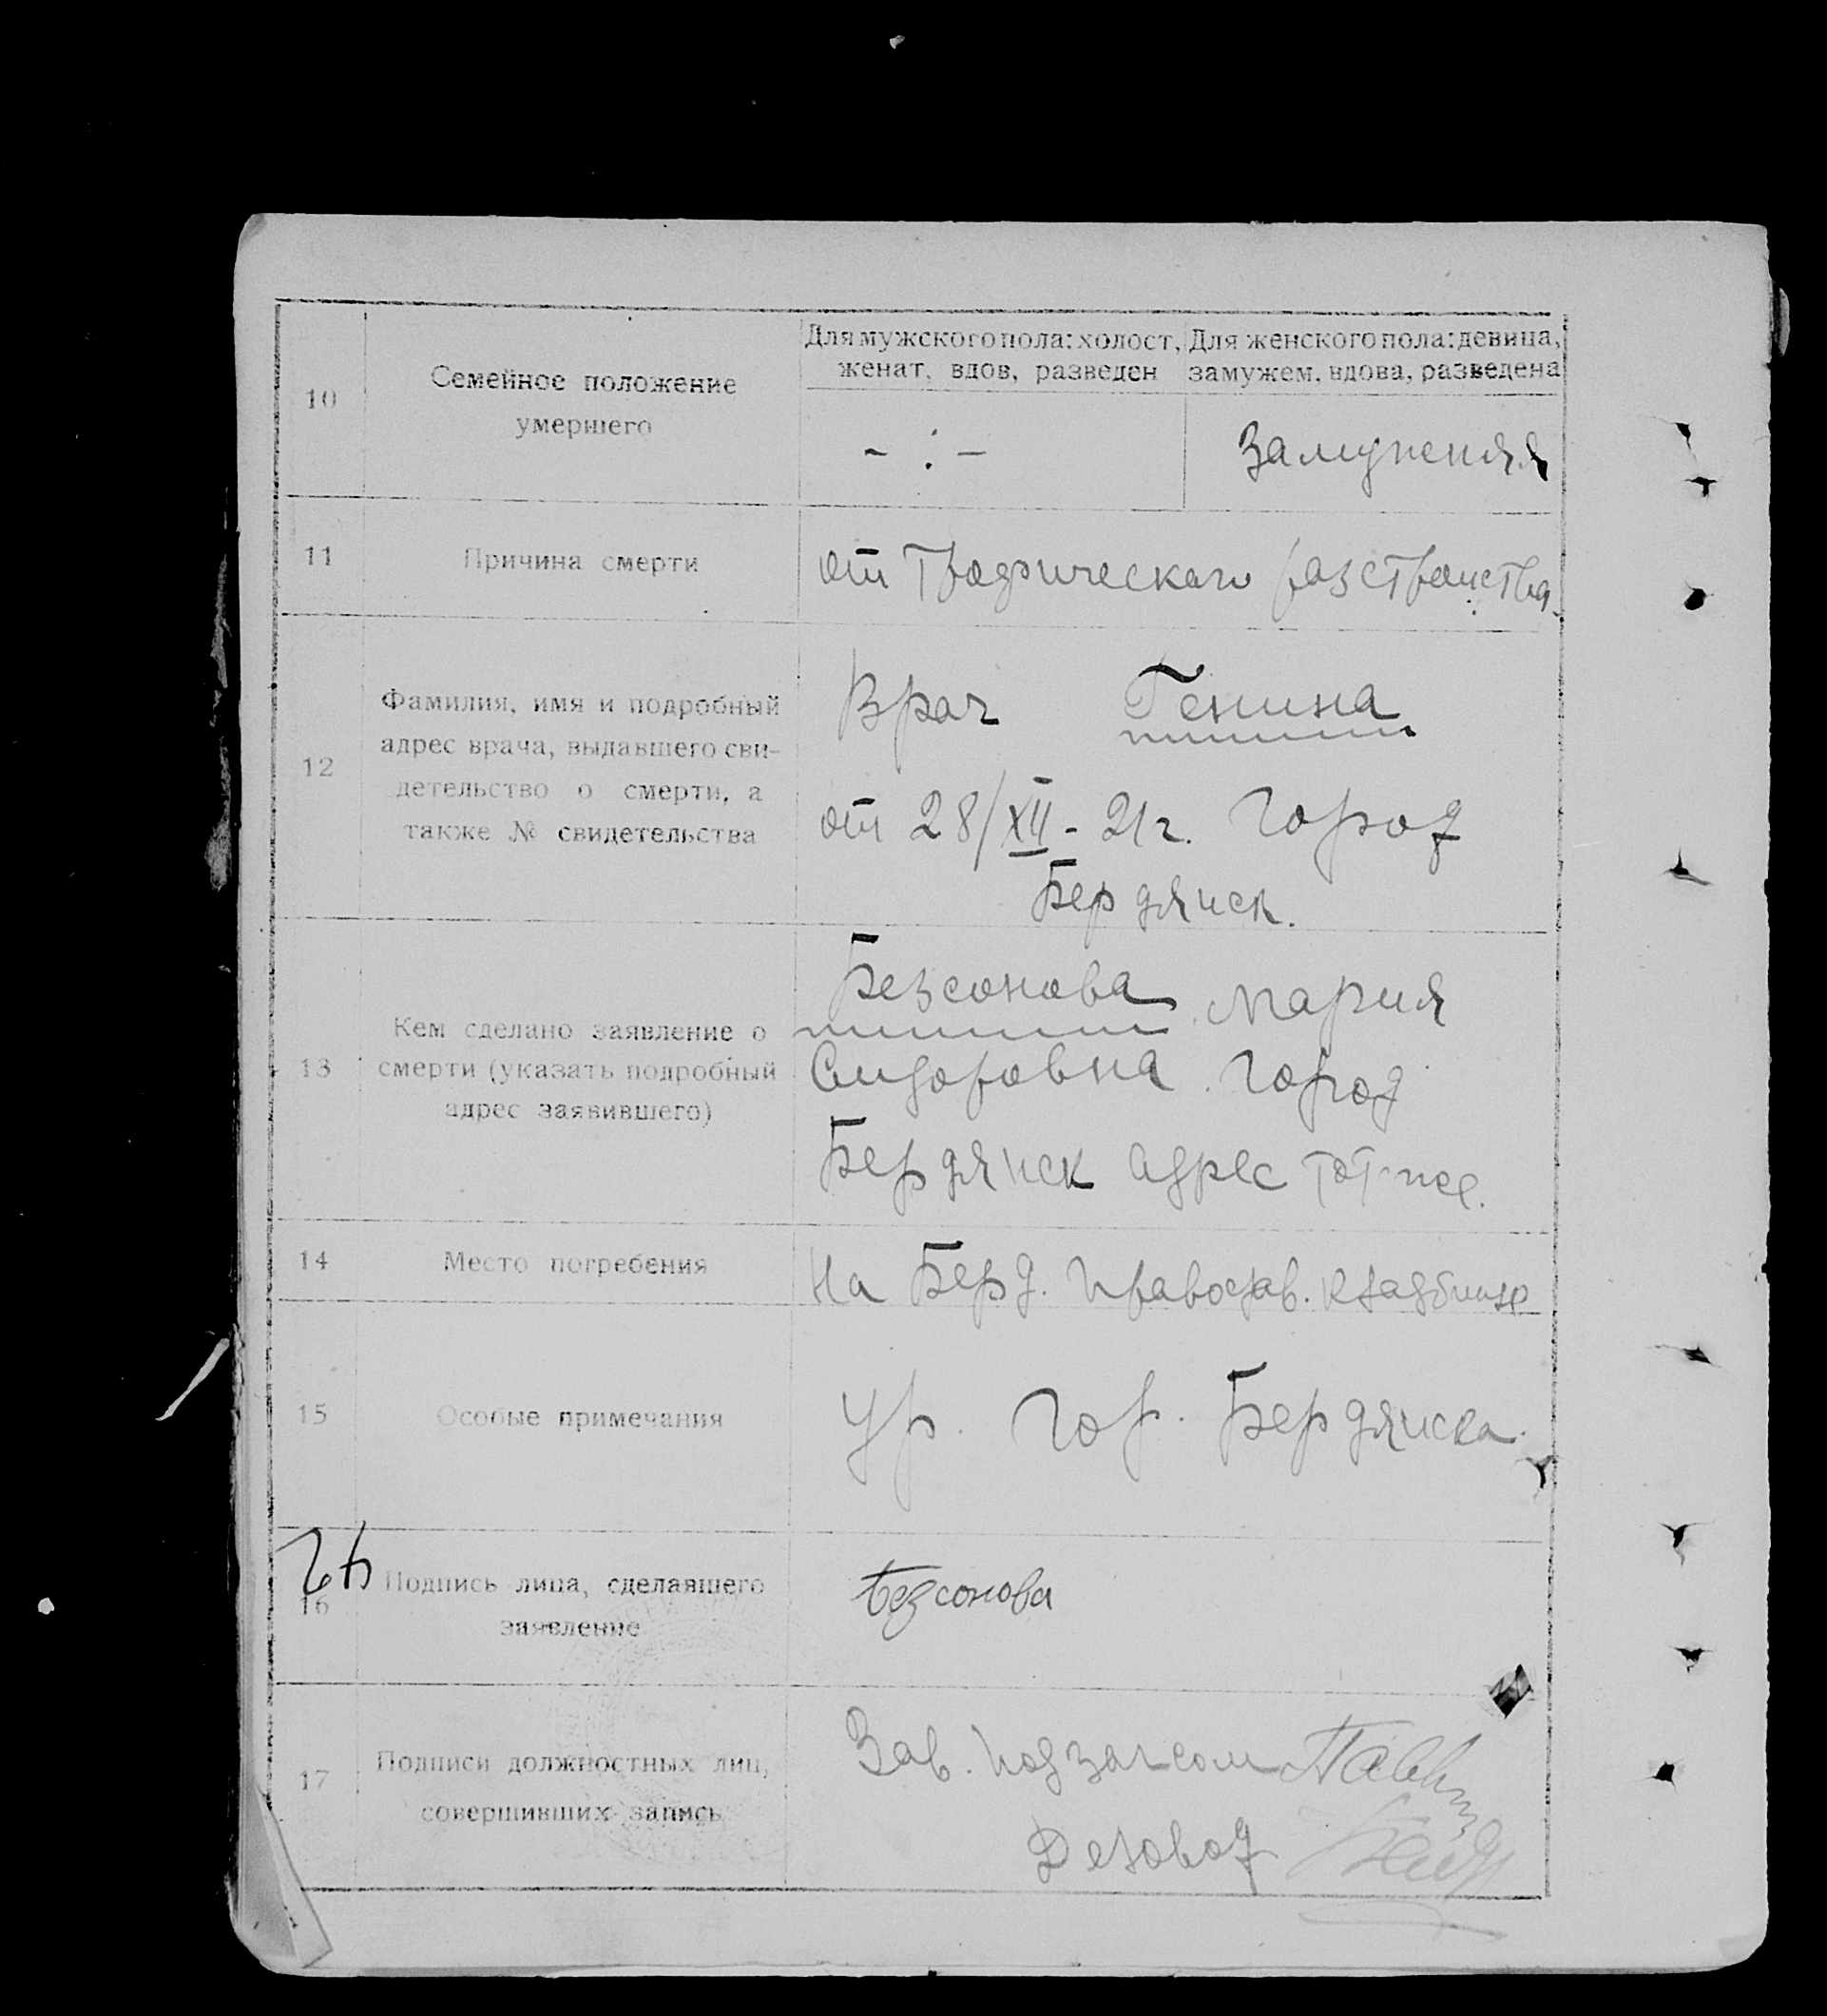 10
Семейное положение
умершего
Для мужского пола: холост,
женат, вдов, разведен
Для женского пола: девица,
замужем, вдова, разведена
- : -
Замужняя
11
Причина смерти
от Трафическаго разстройства.
12
Фамилия, имя и подробный
адрес врача, выдавшего сви-
детельство о смерти, а
также № свидетельства
Врач Генина
от 28/XII - 21 г. Город
Бердянск.
13
Кем сделано заявление о
смерти (указать подробный
адрес заявившего)
Безсонова Мария
Сидоровна. Город
Бердянск адрес тот-же.
14
Место погребения
На Берд. Православ. кладбище
15
Особые примечания
Ур. Гор. Бердянска.
16
Подпись лица, сделавшего
заявление
Безсонова
17
Подписи должностных лиц,
совершивших запись
Зав. Подзагсом
Деловод